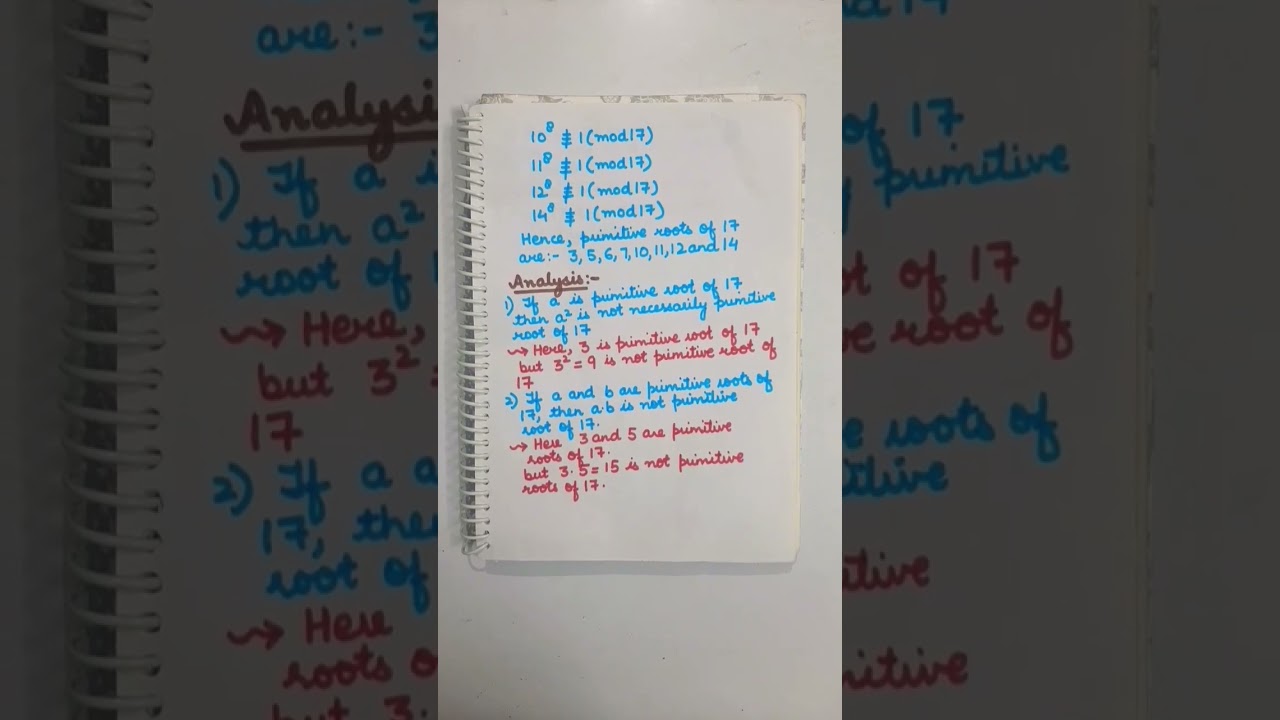 10⁸ ≢ 1 (mod 17)
11⁸ ≢ 1 (mod 17)
12⁸ ≢ 1 (mod 17)
14⁸ ≢ 1 (mod 17)
Hence, primitive roots of 17
are:- 3, 5, 6, 7, 10, 11, 12 and 14
Analysis:-
1) If a is primitive root of 17
then a² is not necessarily primitive
root of 17
⇝ Here, 3 is primitive root of 17
but 3² = 9 is not primitive root of
17
2) If a and b are primitive roots of
17, then a.b is not primitive
root of 17.
⇝ Here 3 and 5 are primitive
roots of 17.
but 3.5 = 15 is not primitive
roots of 17.